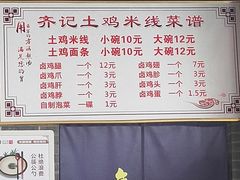 齐记土鸡米线菜谱
土鸡米线 小碗10元 大碗12元
土鸡面条 小碗10元 大碗12元
卤鸡腿 一个 12元
卤鸡爪 一个 3元
卤鸡肝 一个 3元
卤鸡脖 一个 2元
自制泡菜 一碟 1元
卤鸡翅 一个 7元
卤鸡胗 一个 3元
卤鸡头 一个 2元
卤鸡蛋 一个 1.5元
用
杜绝浪费
公筷公勺